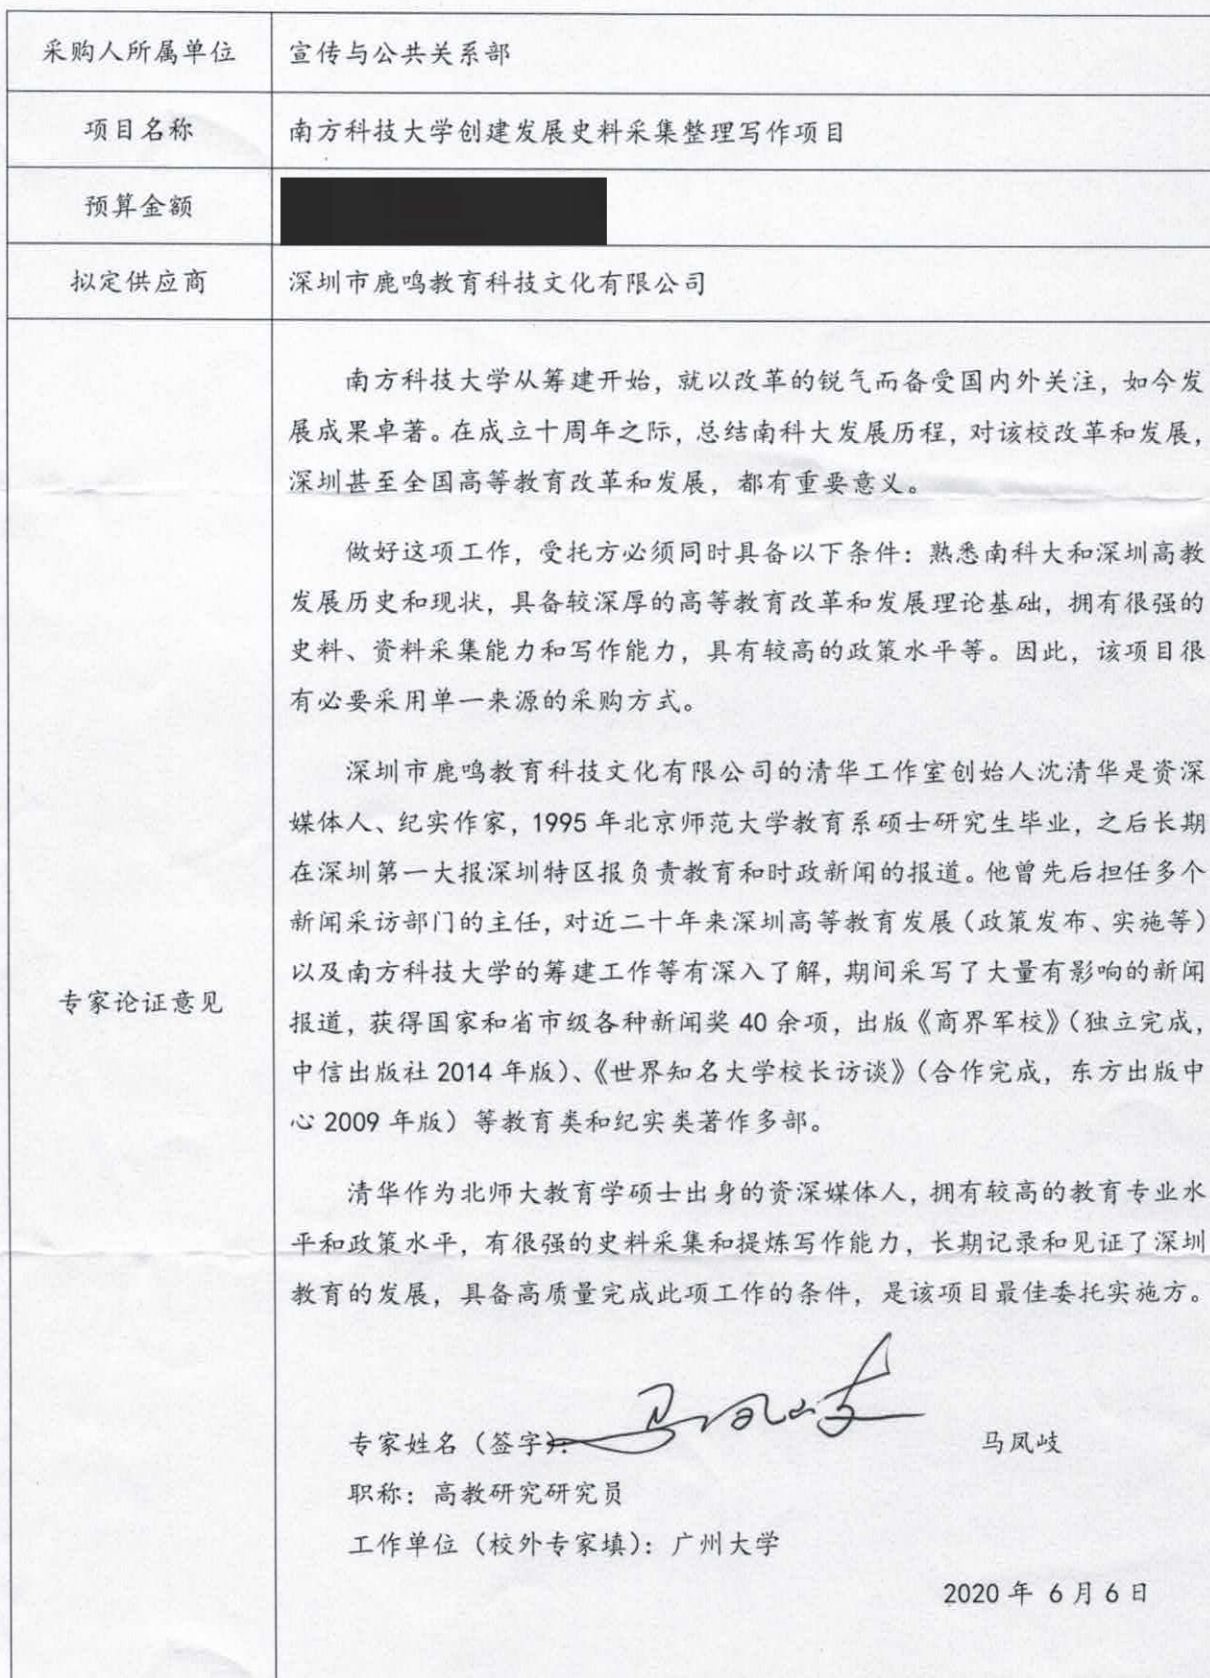 采购人所属单位 宣传与公共关系部
项目名称 南方科技大学创建发展史料采集整理写作项目
预算金额
拟定供应商 深圳市鹿鸣教育科技文化有限公司
南方科技大学从筹建开始，就以改革的锐气而备受国内外关注，如今发
展成果卓著。在成立十周年之际，总结南科大发展历程，对该校改革和发展，
深圳甚至全国高等教育改革和发展，都有重要意义。
做好这项工作，受托方必须同时具备以下条件：熟悉南科大和深圳高教
发展历史和现状，具备较深厚的高等教育改革和发展理论基础，拥有很强的
史料、资料采集能力和写作能力，具有较高的政策水平等。因此，该项目很
有必要采用单一来源的采购方式。
深圳市鹿鸣教育科技文化有限公司的清华工作室创始人沈清华是资深
媒体人、纪实作家，1995 年北京师范大学教育系硕士研究生毕业，之后长期
在深圳第一大报深圳特区报负责教育和时政新闻的报道。他曾先后担任多个
新闻采访部门的主任，对近二十年来深圳高等教育发展（政策发布、实施等）
以及南方科技大学的筹建工作等有深入了解，期间采写了大量有影响的新闻
专家论证意见
报道，获得国家和省市级各种新闻奖 40 余项，出版《商界军校》（独立完成，
中信出版社 2014 年版）、《世界知名大学校长访谈》（合作完成，东方出版中
心 2009 年版）等教育类和纪实类著作多部。
清华作为北师大教育学硕士出身的资深媒体人，拥有较高的教育专业水
平和政策水平，有很强的史料采集和提炼写作能力，长期记录和见证了深圳
教育的发展，具备高质量完成此项工作的条件，是该项目最佳委托实施方。
专家姓名（签字）： 马凤岐 马凤岐
职称：高教研究研究员
工作单位（校外专家填）：广州大学
2020 年 6 月 6 日